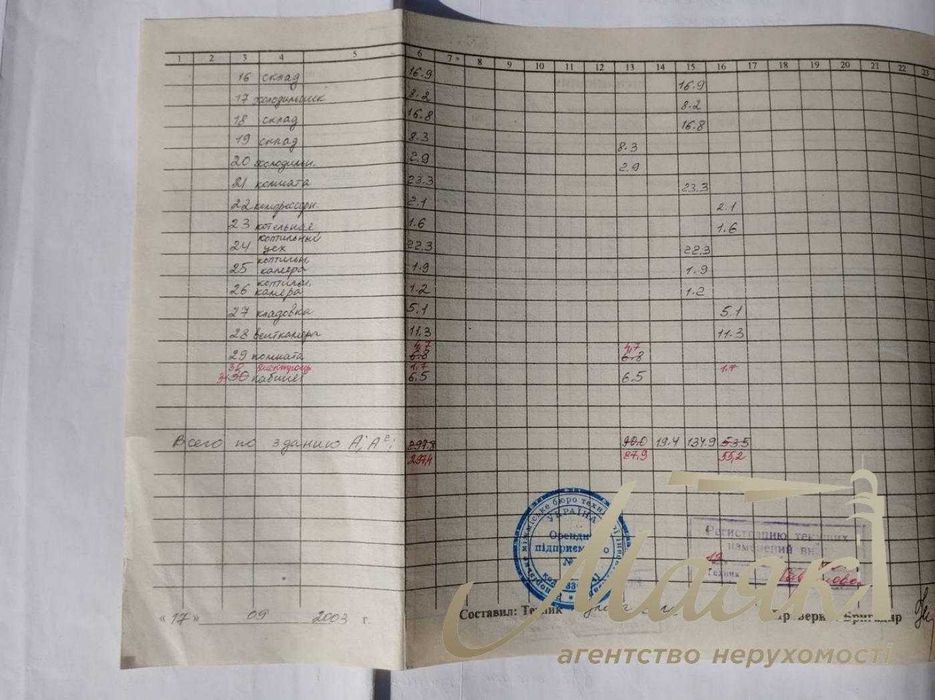 1 2 3 4 5 6 7 8 9 10 11 12 13 14 15 16 17 18 19 20 21 22 23
16 склад 16.9 16.9
17 холодильник 8.2 8.2
18 склад 16.8 16.8
19 склад 8.3 8.3
20 холодильн. 2.9 2.9
21 комната 23.3 23.3
22 компрессорн. 2.1 2.1
23 котельная 1.6 1.6
24 коптильный цех 22.3 22.3
25 коптильн. камера 1.9 1.9
26 коптильн. камера 1.2 1.2
27 кладовка 5.1 5.1
28 венткамера 11.3 11.3
4,7 4,7
29 комната 6.8 6.8
1,7 1,7
30 кабинет 6.5 6.5
Всего по зданию 297.8 90.0 19.4 134.9 53.5
297,4 87,9 55,2
УКРАЇНА
Орендне
підприємство
Регистрацию текущих
изменений
Техник
Маяк
Составил: Техник
Проверил Бригадир
«17» 09 2003 г.
агентство нерухомості